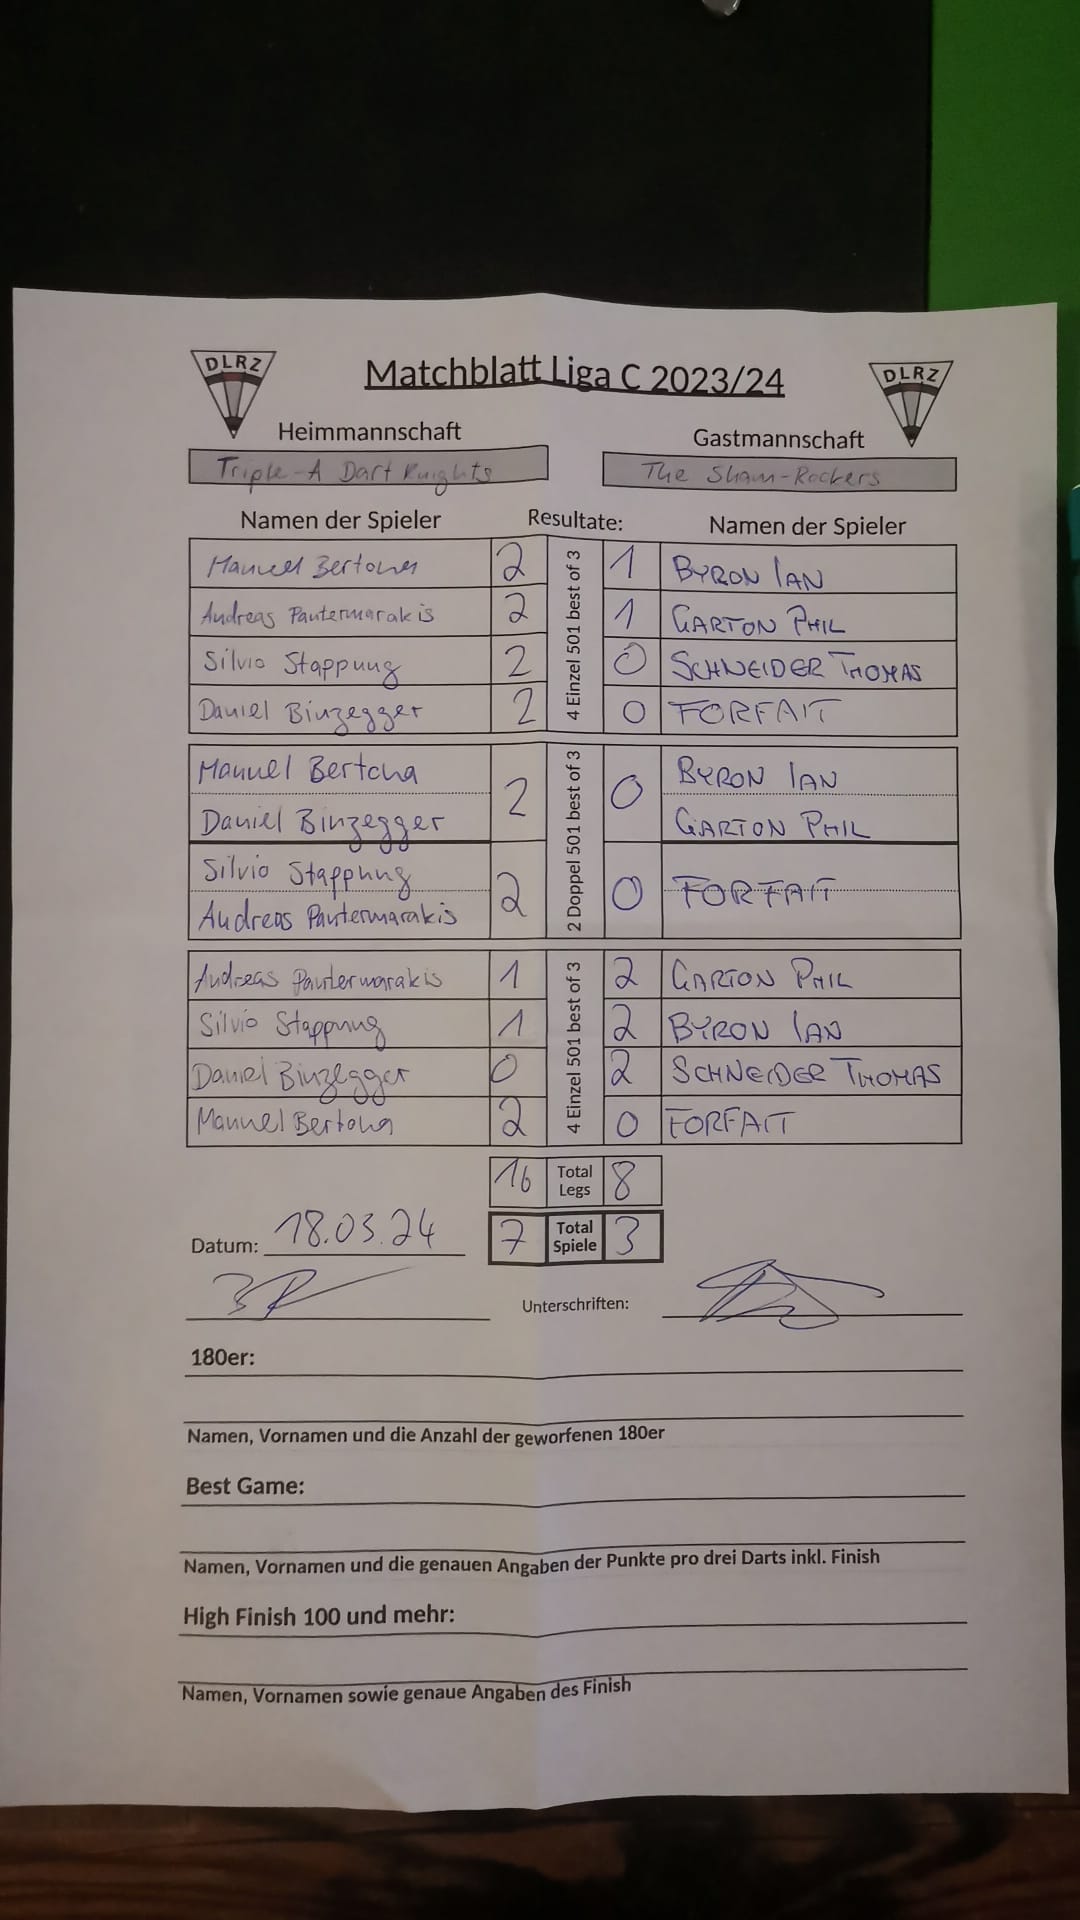 DLRZ Matchblatt Liga C 2023/24 DLRZ
Heimmannschaft Gastmannschaft
Triple-A Dart Knights The Sham-Rockers
Namen der Spieler Resultate: Namen der Spieler
Manuel Bertona 2 1 BYRON IAN
Andreas Pautermarakis 2 1 GARTON PHIL
Silvio Stappung 2 0 SCHNEIDER THOMAS
Daniel Binzegger 2 0 FORFAIT
4 Einzel 501 best of 3
Manuel Bertona BYRON IAN
2 0
Daniel Binzegger GARTON PHIL
Silvio Stappung
2 0 FORFAIT
Andreas Pautermarakis
2 Doppel 501 best of 3
Andreas Pautermarakis 1 2 GARTON PHIL
Silvio Stappung 1 2 BYRON IAN
Daniel Binzegger 0 2 SCHNEIDER THOMAS
Manuel Bertona 2 0 FORFAIT
4 Einzel 501 best of 3
16 Total Legs 8
Datum: 18.03.24 7 Total Spiele 3
Unterschriften:
180er:
Namen, Vornamen und die Anzahl der geworfenen 180er
Best Game:
Namen, Vornamen und die genauen Angaben der Punkte pro drei Darts inkl. Finish
High Finish 100 und mehr:
Namen, Vornamen sowie genaue Angaben des Finish